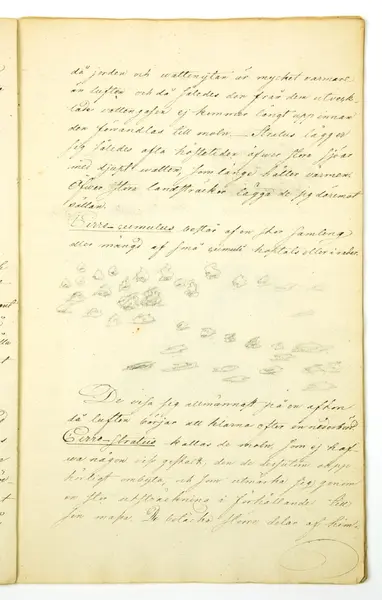 då jorden och wattenytan är mycket varmare
än luften och då således den från den utveck-
lade vattengasen ej kommer långt upp innan
den förvandlas till moln. Stratus lägger
sig således ofta hösttiden öfver större sjöar
med djupt watten, som länge håller varmen.
Öfver större landsträckor lägga de sig däremot
sällan.
Cirro-cumulus består af en stor samling
eller mängd af små cumuli
De visa sig allmännast på en afton
då luften börjar att klarna efter
Cirro-Stratus kallas de moln, som ej haf-
wa någon viss gestalt, den de dessutom
ombyta, och som utmärka sig genom
en stor utsträckning i förhållande till
sin massa. De betäcka större delar af him-